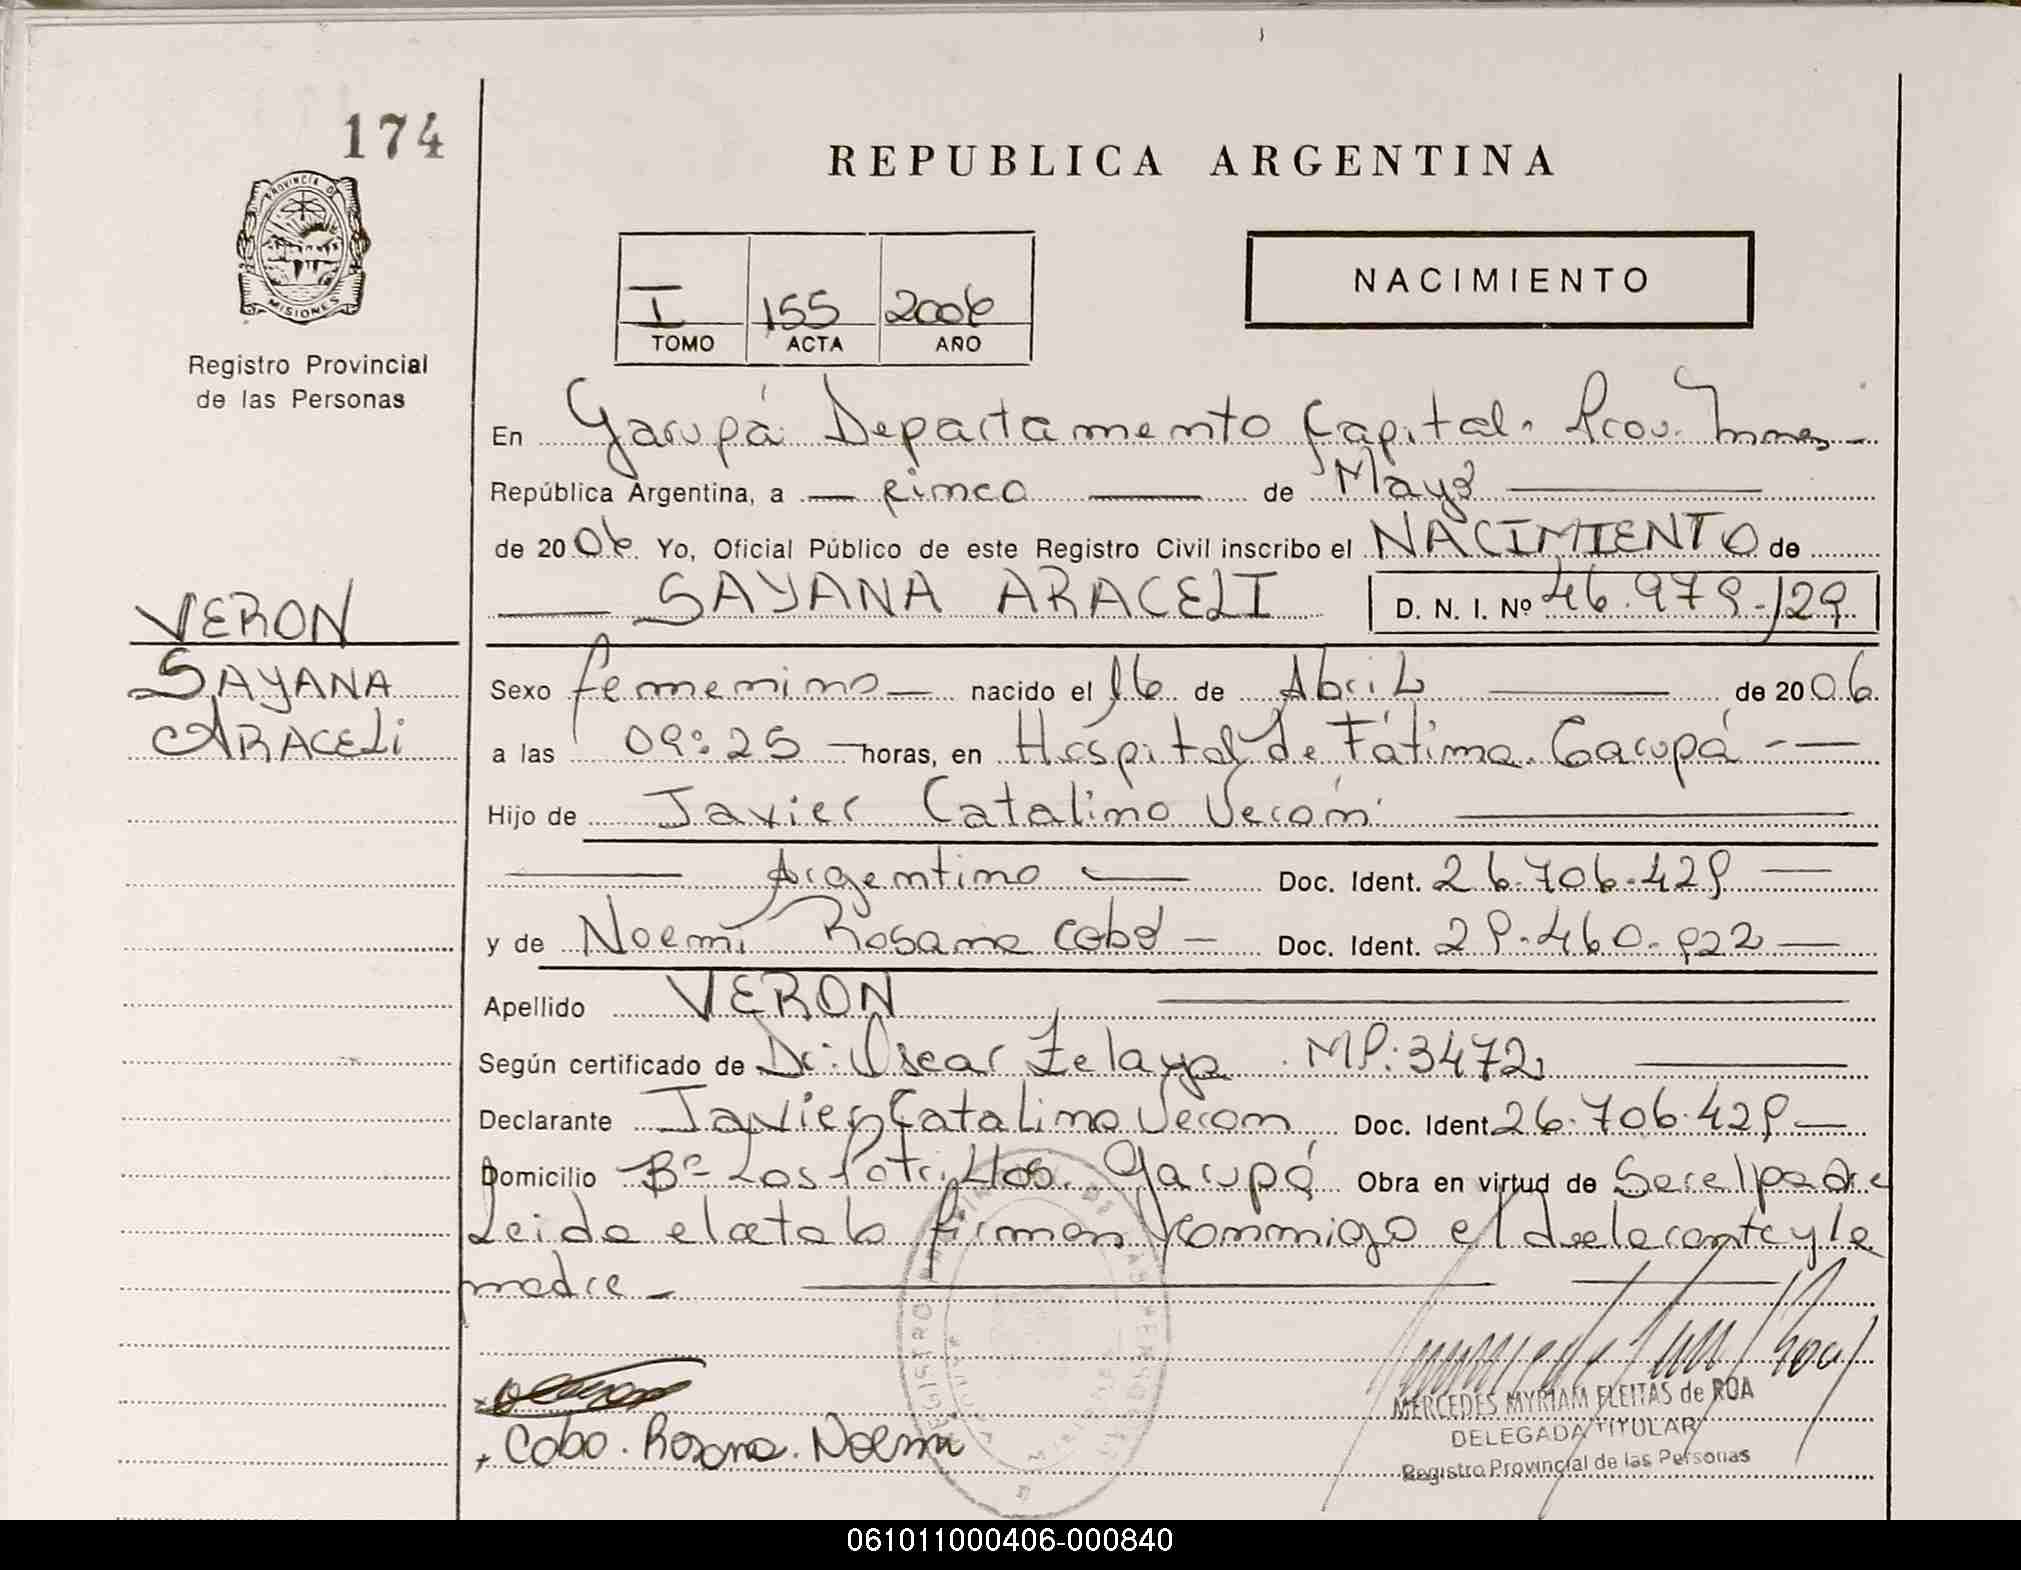 174
REPUBLICA ARGENTINA
PROVINCIA DE
MISIONES
Registro Provincial
de las Personas
I 155 2006
TOMO ACTA AÑO
NACIMIENTO
En Garupá Departamento Capital. Prov.
República Argentina, a cinco de Mayo
de 2006 Yo, Oficial Público de este Registro Civil inscribo el NACIMIENTO de
SAYANA ARACELI D. N. I. Nº 46.979.129
VERON
SAYANA
ARACELi
Sexo femenino nacido el 16 de Abril de 2006
a las 09:25 horas, en Hospital de Fátima. Garupá
Hijo de Javier Catalino Verón
Argentino Doc. Ident. 26.706.429
y de Noemí Rosana Cobo Doc. Ident. 29.460.922
Apellido VERON
Según certificado de Dr: Oscar Zelaya MP:3472
Declarante Javier Catalino Veron Doc. Ident. 26.706.429
Domicilio Bº Los Potrillos. Garupá Obra en virtud de Ser el padre
Leida el acta la firman conmigo el declarante y la
madre
Cobo. Rosana. Noemi
MERCEDES MYRIAM FLEITAS de ROA
DELEGADA TITULAR
Registro Provincial de las Personas
061011000406-000840